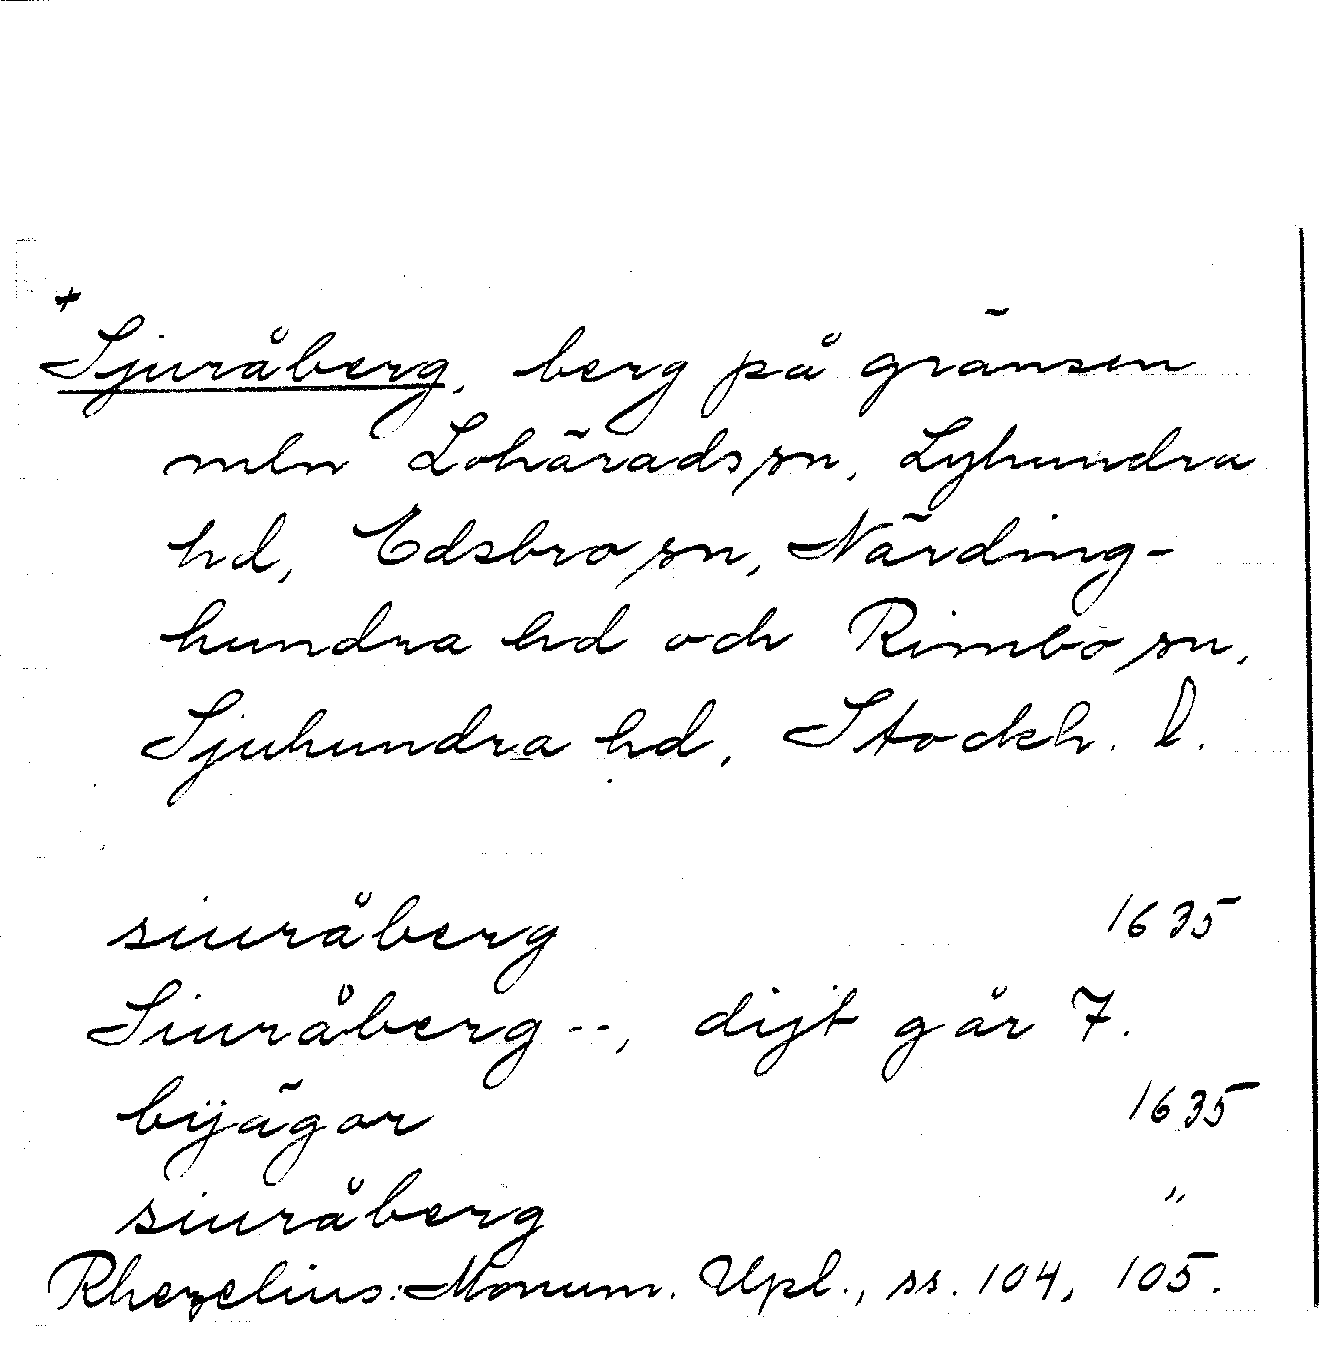 +
Sjuråberg, berg på gränsen
mln Lohärads sn, Lyhundra
hd, Edsbro sn, Närding-
hundra hd och Rimbo sn,
Sjuhundra hd, Stockh. l.
siuråberg 1635
Siuråberg --, dijt går 7.
bÿägor 1635
siuråberg "
Rhezelius: Monum. Upl., ss. 104, 105.